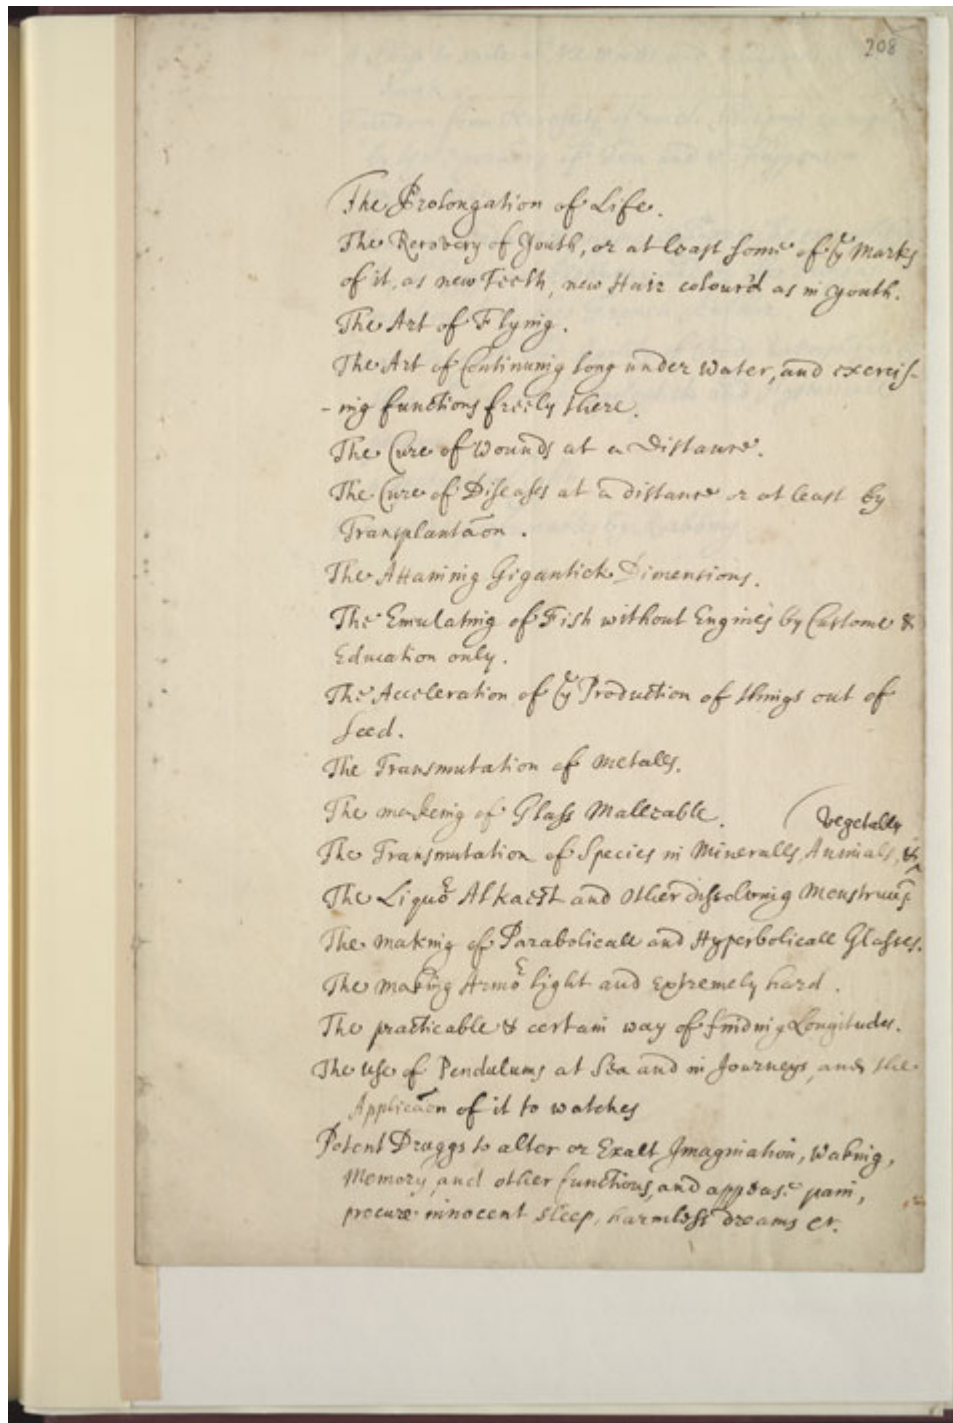 208
The Prolongation of Life.
The Recovery of Youth, or at least some of ye Marks
of it, as new Teeth, new Hair colour'd as in youth.
The Art of Flying.
The Art of Continuing long under water, and exercis-
-ing functions freely there.
The Cure of Wounds at a Distance.
The Cure of Diseases at a distance or at least by
Transplantaon.
The Attaining Gigantick Dimensions.
The Emulating of Fish without Engines by Custome &
Education only.
The Acceleration of ye Production of things out of
Seed.
The Transmutation of Metalls.
The makeing of Glass Malleable.
Vegetables
The Transmutation of Species in Mineralls, Animals, &
The Liquor Alkaest and other dissolving Menstruums
The making of Parabolicall and Hyperbolicall Glasses.
The making Armor light and extremely hard.
The practicable & certain way of finding Longitudes.
The use of Pendulums at Sea and in Journeys, and the
Applicaon of it to watches
Potent Druggs to alter or Exalt Imagination, Waking,
Memory, and other functions, and appease pain,
procure innocent sleep, harmless dreams etc.